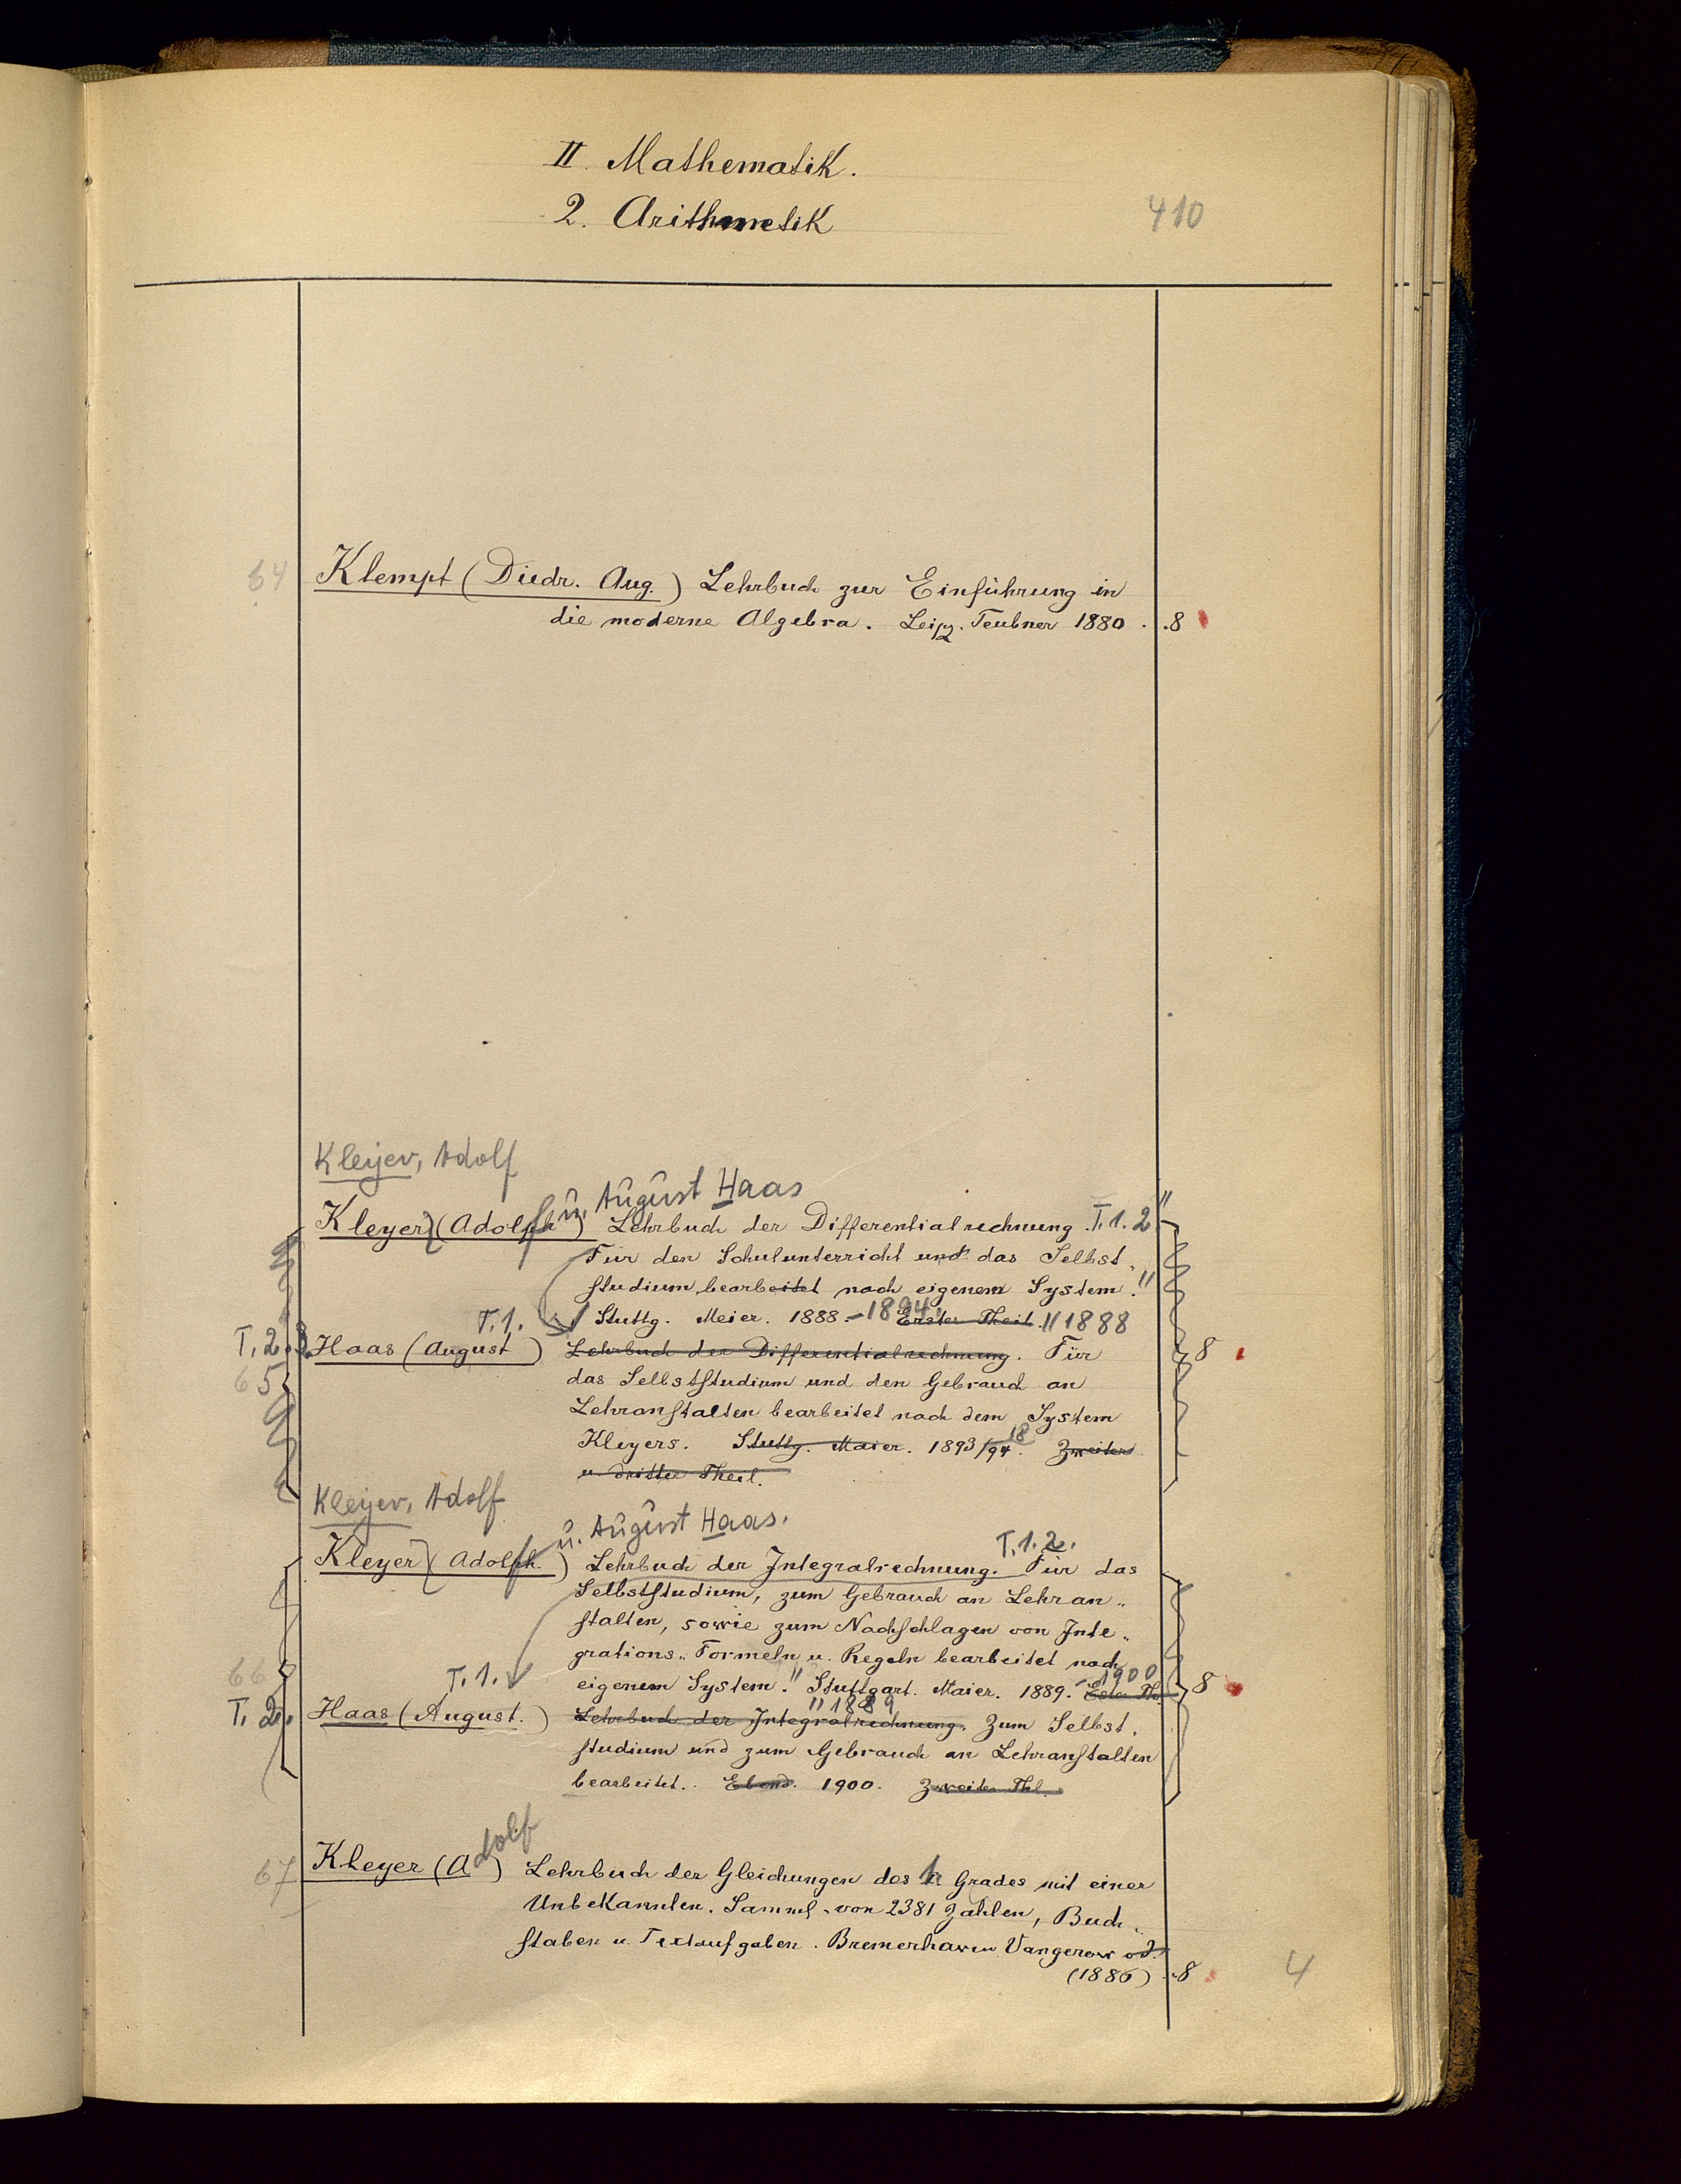 II. Mathematik.
2. Arithmetik
410
64 Klempt (Diedr. Aug.) Lehrbuch zur Einführung in
die moderne Algebra. Leipz. Teubner 1880. . 8
Kleyer, Adolf
u. August Haas
Kleyer (Adolph) Lehrbuch der Differentialrechnung. T. 1. 2
Für den Schulunterricht und das Selbst-
studium bearbeitet nach eigenem System.
T. 1. Stuttg. Meier. 1888. - 1894 Erster Theil. 1888
T. 2. 3. Haas (August) Lehrbuch der Differentialrechnung. Für 8
65 das Selbststudium und den Gebrauch an
Lehranstalten bearbeitet nach dem System
Kleyers. Stuttg. Maier. 1893/1894. Zweiter
u. dritter Theil.
Kleyer, Adolf
u. August Haas.
Kleyer (Adolph.) Lehrbuch der Integralrechnung. T. 1. 2. Für das
Selbststudium, zum Gebrauch an Lehran-
stalten, sowie zum Nachschlagen von Inte-
grations-Formeln u. Regeln bearbeitet nach
66 T. 1. eigenem System. Stuttgart. Maier. 1889. - 1900 Erster Th. 8
1889
T. 2. Haas (August.) Lehrbuch der Integralrechnung. Zum Selbst-
studium und zum Gebrauch an Lehranstalten
bearbeitet. Ebend. 1900. Zweiter Thl.
67 Kleyer (Adolf) Lehrbuch der Gleichungen des 1. Grades mit einer
Unbekannten. Samml. von 2381 Zahlen, Buch-
staben u. Textaufgaben. Bremerhaven Vangerow
(1886) . 8
4